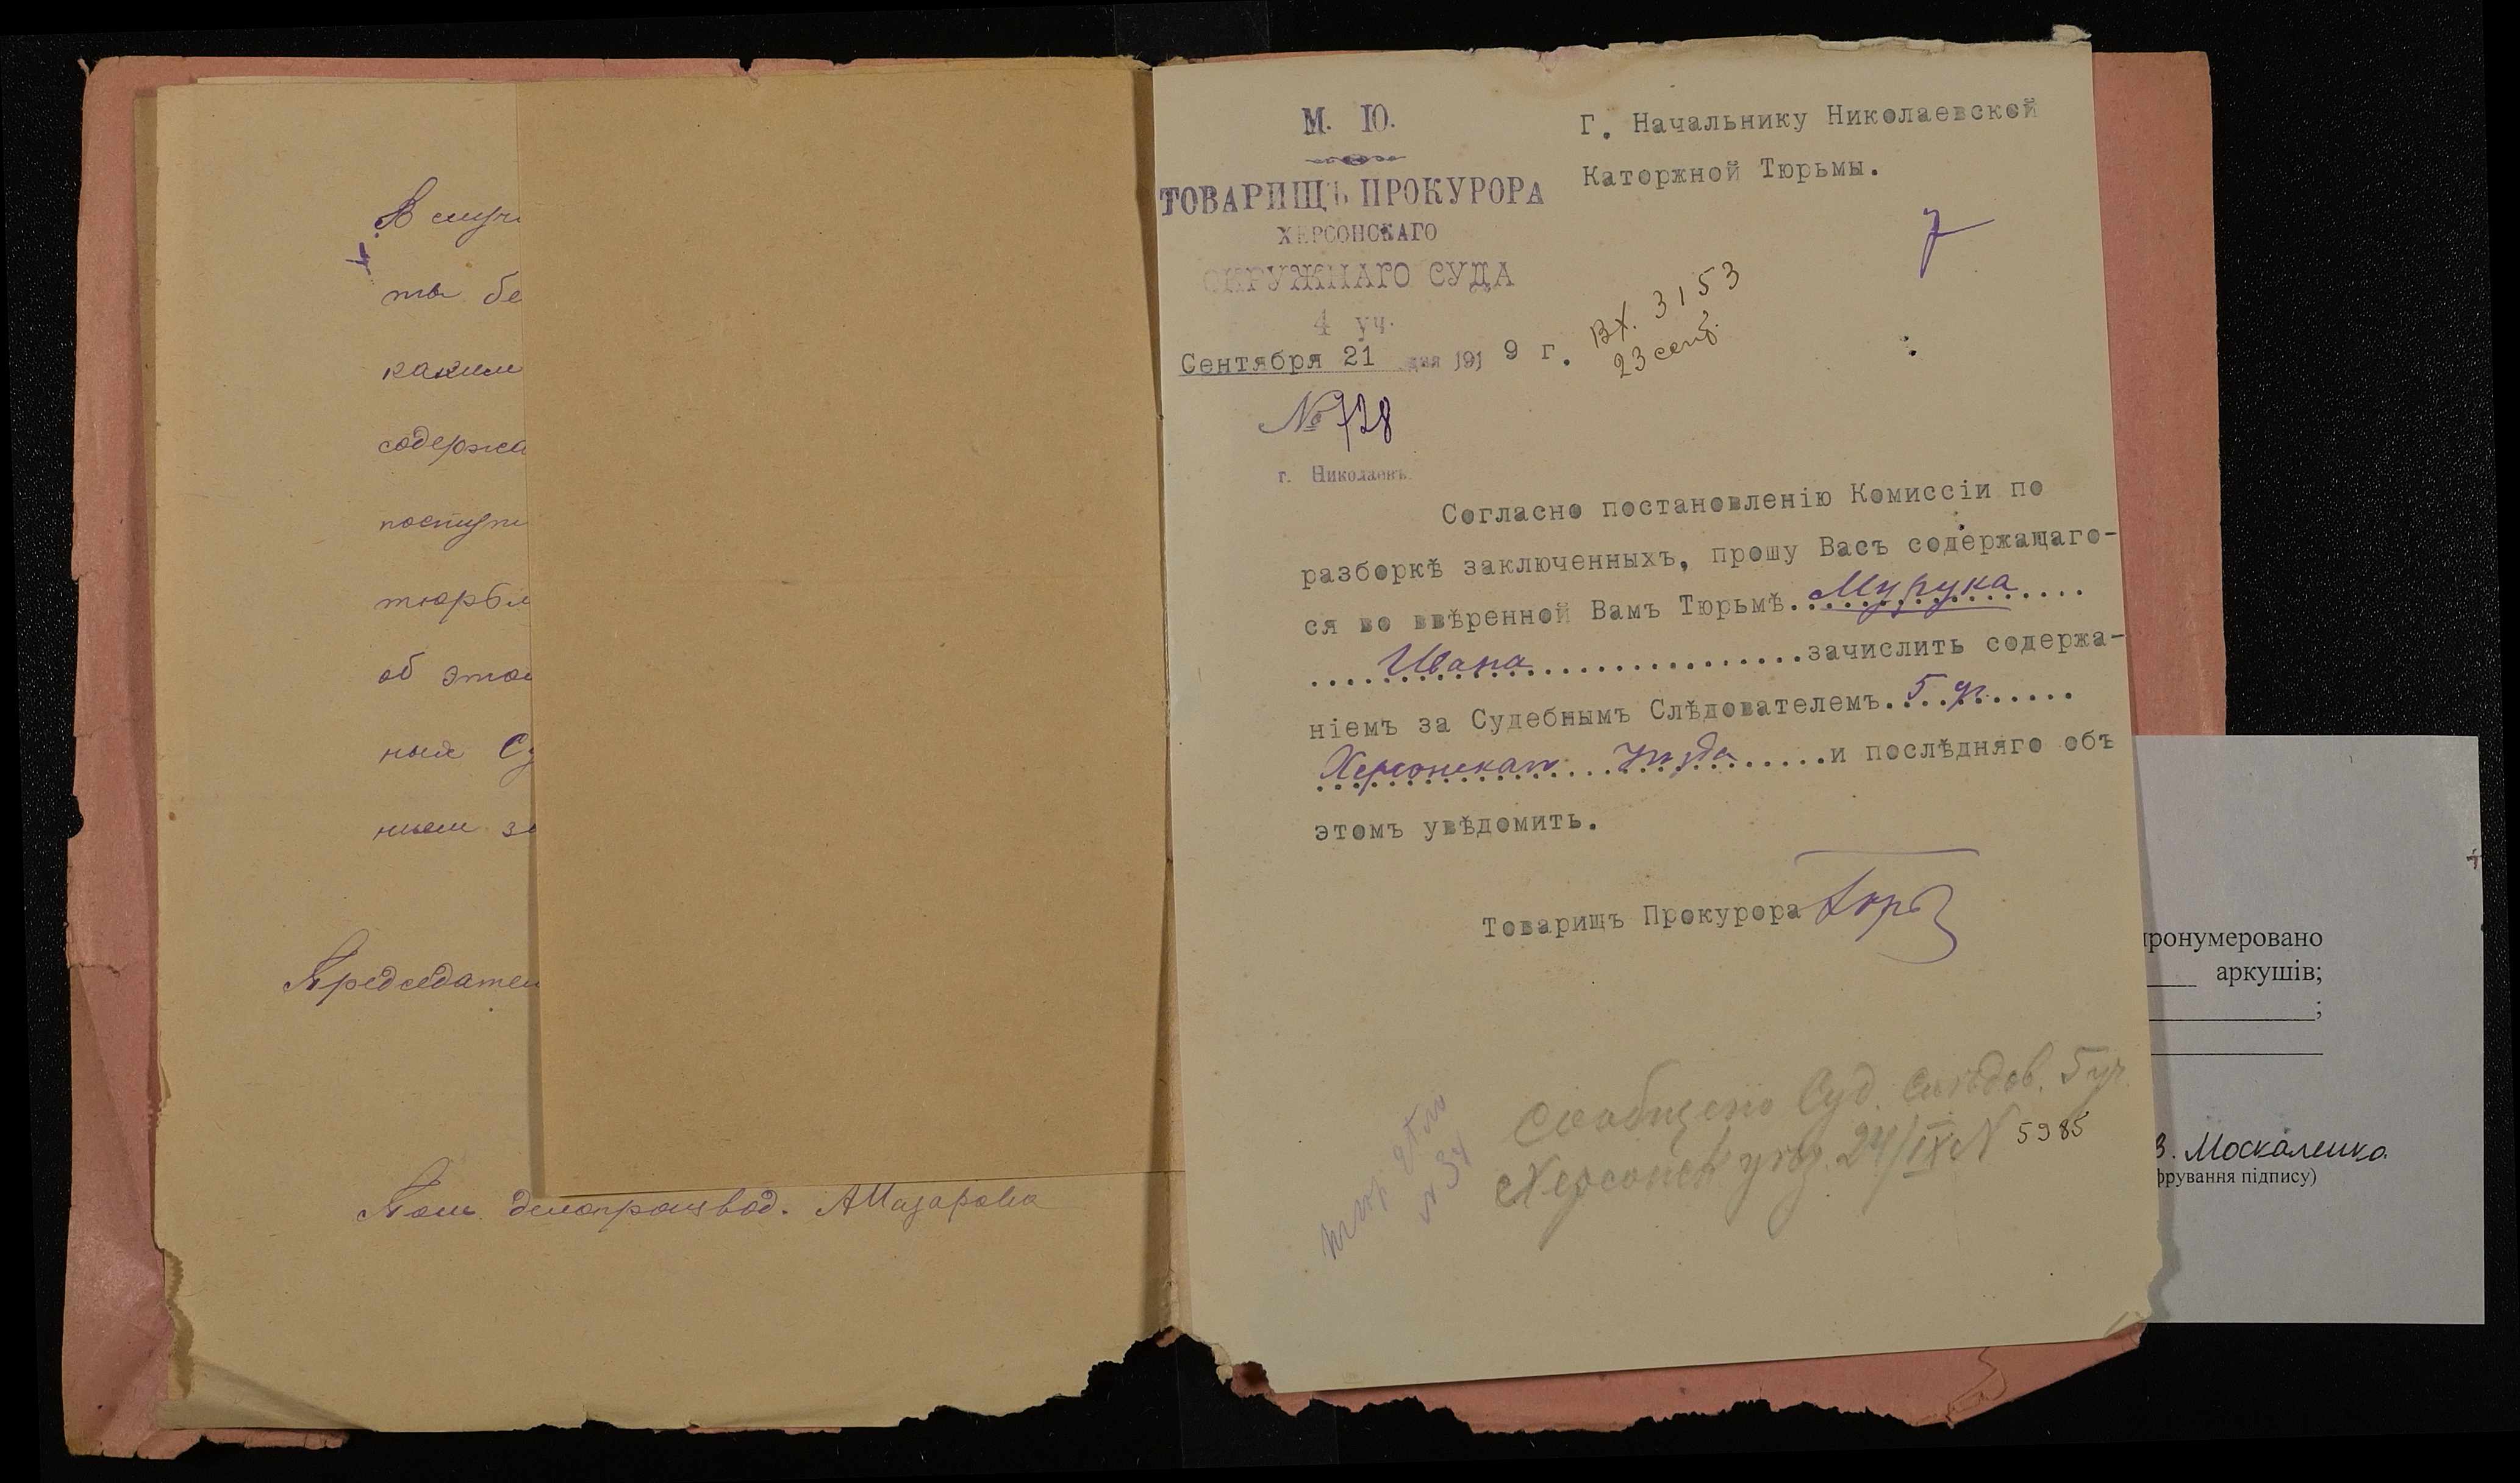 В случ
ты бе
каким
содержа
поступи
тюрьм
об этом
ныя Су
ныем за
Председател
Пом. делопроизвод. А Назарова
М. Ю.
ТОВАРИЩЪ ПРОКУРОРА
ХЕРСОНСКАГО
ОКРУЖНАГО СУДА
4 уч.
Сентября 21 дня 1919 г.
№ 728
г. Николаевъ.
Г. Начальнику Николаевской
Каторжной Тюрьмы.
7
Вх. 3153
23 сент.
Согласно постановленію Комиссіи по
разборкѣ заключенныхъ, прошу Васъ содержащаго-
ся во ввѣренной Вамъ Тюрьмѣ. Мурука
Ивана зачислить содержа-
ніемъ за Судебнымъ Слѣдователемъ. 5 уч.
Херсонскаго уѣзда и послѣдняго объ
этомъ увѣдомить.
Товарищъ Прокурора
Сообщено Суд. Слѣдов. 5 уч.
Херсонск уѣз. 24/IX N 5985
пронумеровано
аркушів;
;
В. Москаленко
фрування підпису)